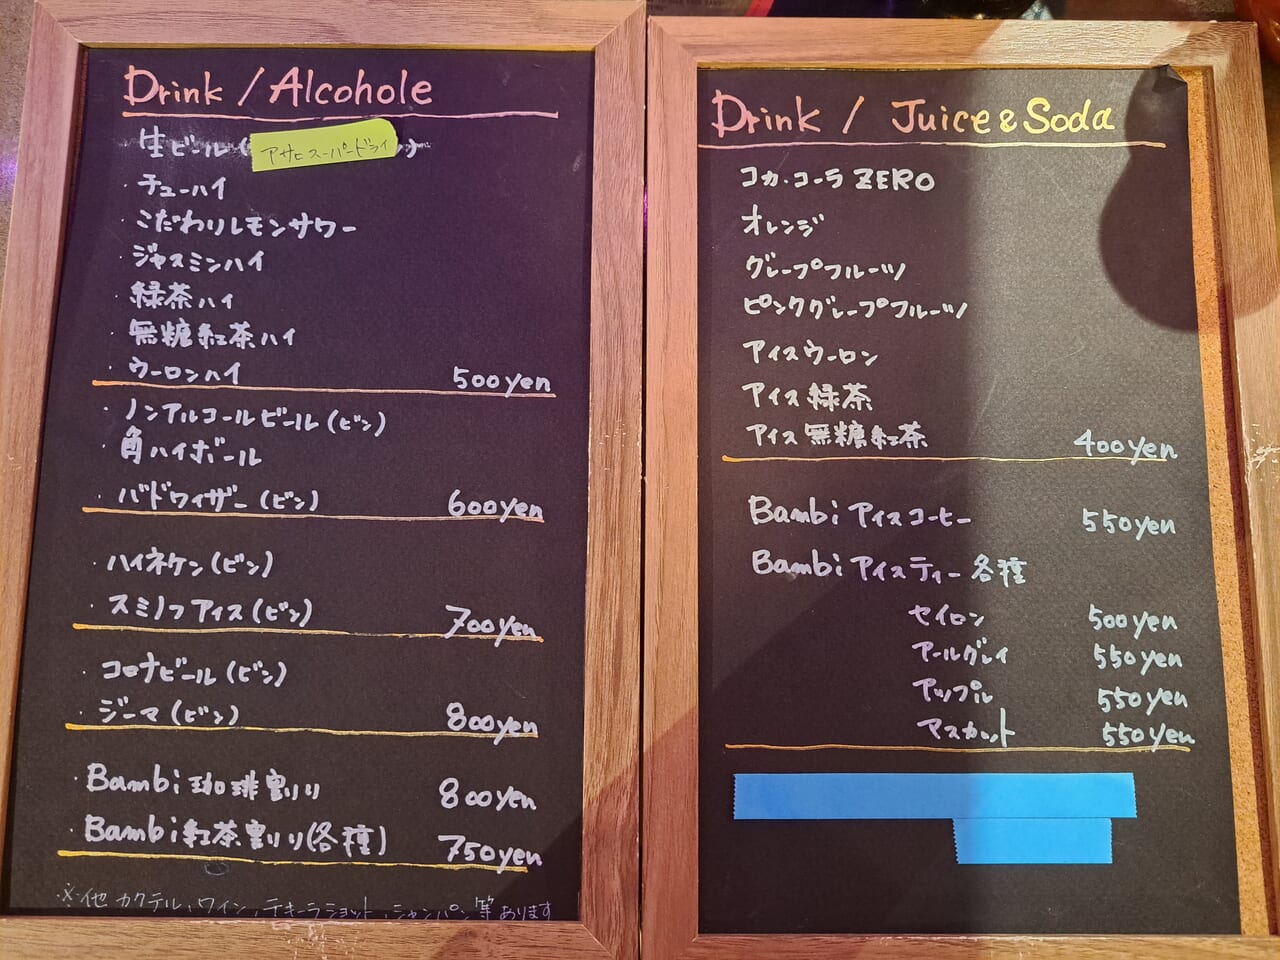 Drink / Alcohole
・生ビール( アサヒスーパードライ )
・チューハイ
・こだわりレモンサワー
・ジャスミンハイ
・緑茶ハイ
・無糖紅茶ハイ
・ウーロンハイ 500yen
・ノンアルコールビール(ビン)
・角ハイボール
・バドワイザー(ビン) 600yen
・ハイネケン(ビン)
・スミノフアイス(ビン) 700yen
・コロナビール(ビン)
・ジーマ(ビン) 800yen
・Bambi 珈琲割り 800yen
・Bambi 紅茶割り(各種) 750yen
※他 カクテル、ワイン、テキーラショット、シャンパン等あります
Drink / Juice & Soda
コカ・コーラ ZERO
オレンジ
グレープフルーツ
ピンクグレープフルーツ
アイスウーロン
アイス緑茶
アイス無糖紅茶 400yen
Bambi アイスコーヒー 550yen
Bambi アイスティー各種
セイロン 500yen
アールグレイ 550yen
アップル 550yen
マスカット 550yen